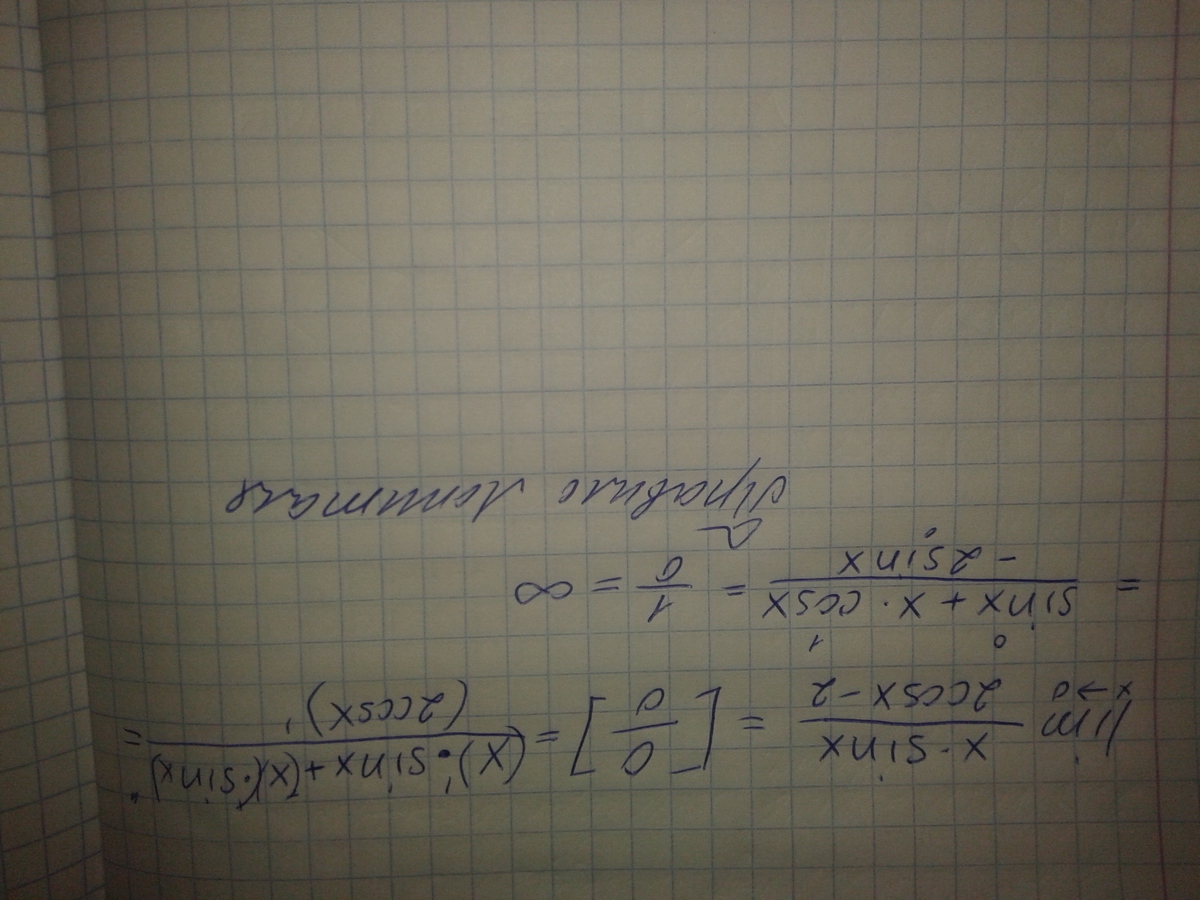 lim x→0 x·sinx / 2cosx-2 = [0/0] = (x)'·sinx+(x)(sinx)' / (2cosx)' =
= sinx + x·cosx / -2sinx = 1/0 = ∞
Правило Лопиталя